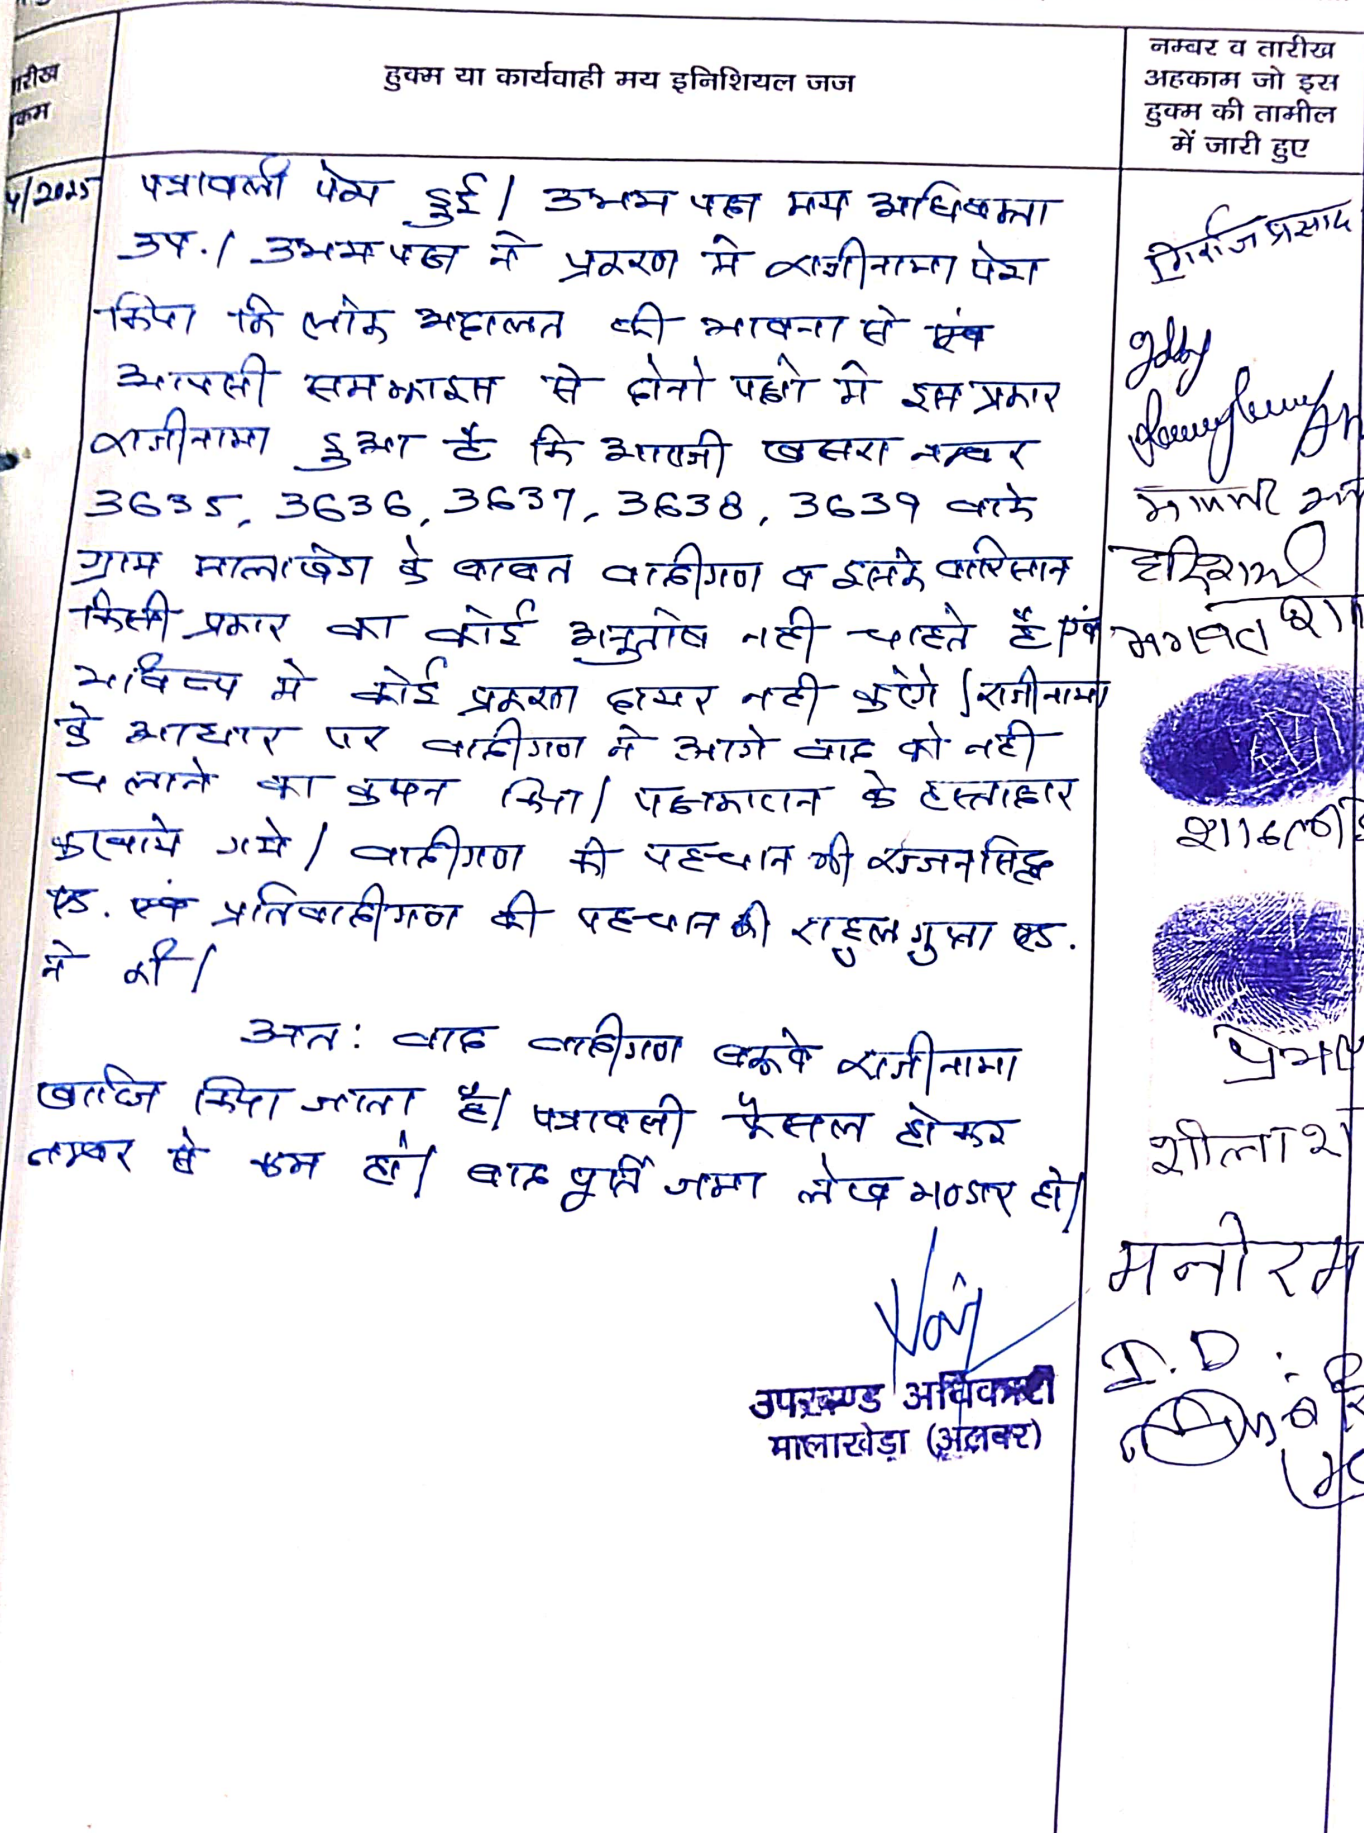 तारीख
हुकम
हुक्म या कार्यवाही मय इनिशियल जज
नम्बर व तारीख
अहकाम जो इस
हुक्म की तामील
में जारी हुए
4/2025
पत्रावली पेश हुई। उभय पक्ष मय अधिवक्ता
उप.। उभयपक्ष ने प्रकरण मे राजीनामा पेश
किया कि लोक अदालत की भावना से एंव
आपसी समझाइस से दोनो पक्षो मे इस प्रकार
राजीनामा हुआ है कि आराजी खसरा नम्बर
3635, 3636, 3637, 3638, 3639 वाके
ग्राम मालाखेडा के बाबत वादीगण व इसके वारिसान
किसी प्रकार का कोई अनुतोष नही चाहते है। एंव
भविष्य मे कोई प्रकरण दायर नही करेंगे। राजीनामा
के आधार पर वादीगण ने आगे वाद को नही
चलाने का कथन किया। पक्षकारान के हस्ताक्षर
करवाये गये। वादीगण की पहचान श्री सज्जनसिंह
एड. एंव प्रतिवादीगण की पहचान श्री राहुल गुप्ता एड.
ने की।
अत: वाद वादीगण बरूवे राजीनामा
खारिज किया जाता है। पत्रावली फैसल होकर
नम्बर से कम हो। बाद पूर्ति जमा लेख भण्डार हो।
उपखण्ड अधिकारी
मालाखेडा (अलवर)
गिर्राज प्रसाद
हरिराम
भगवत
शीला श
मनोरम
I.D.